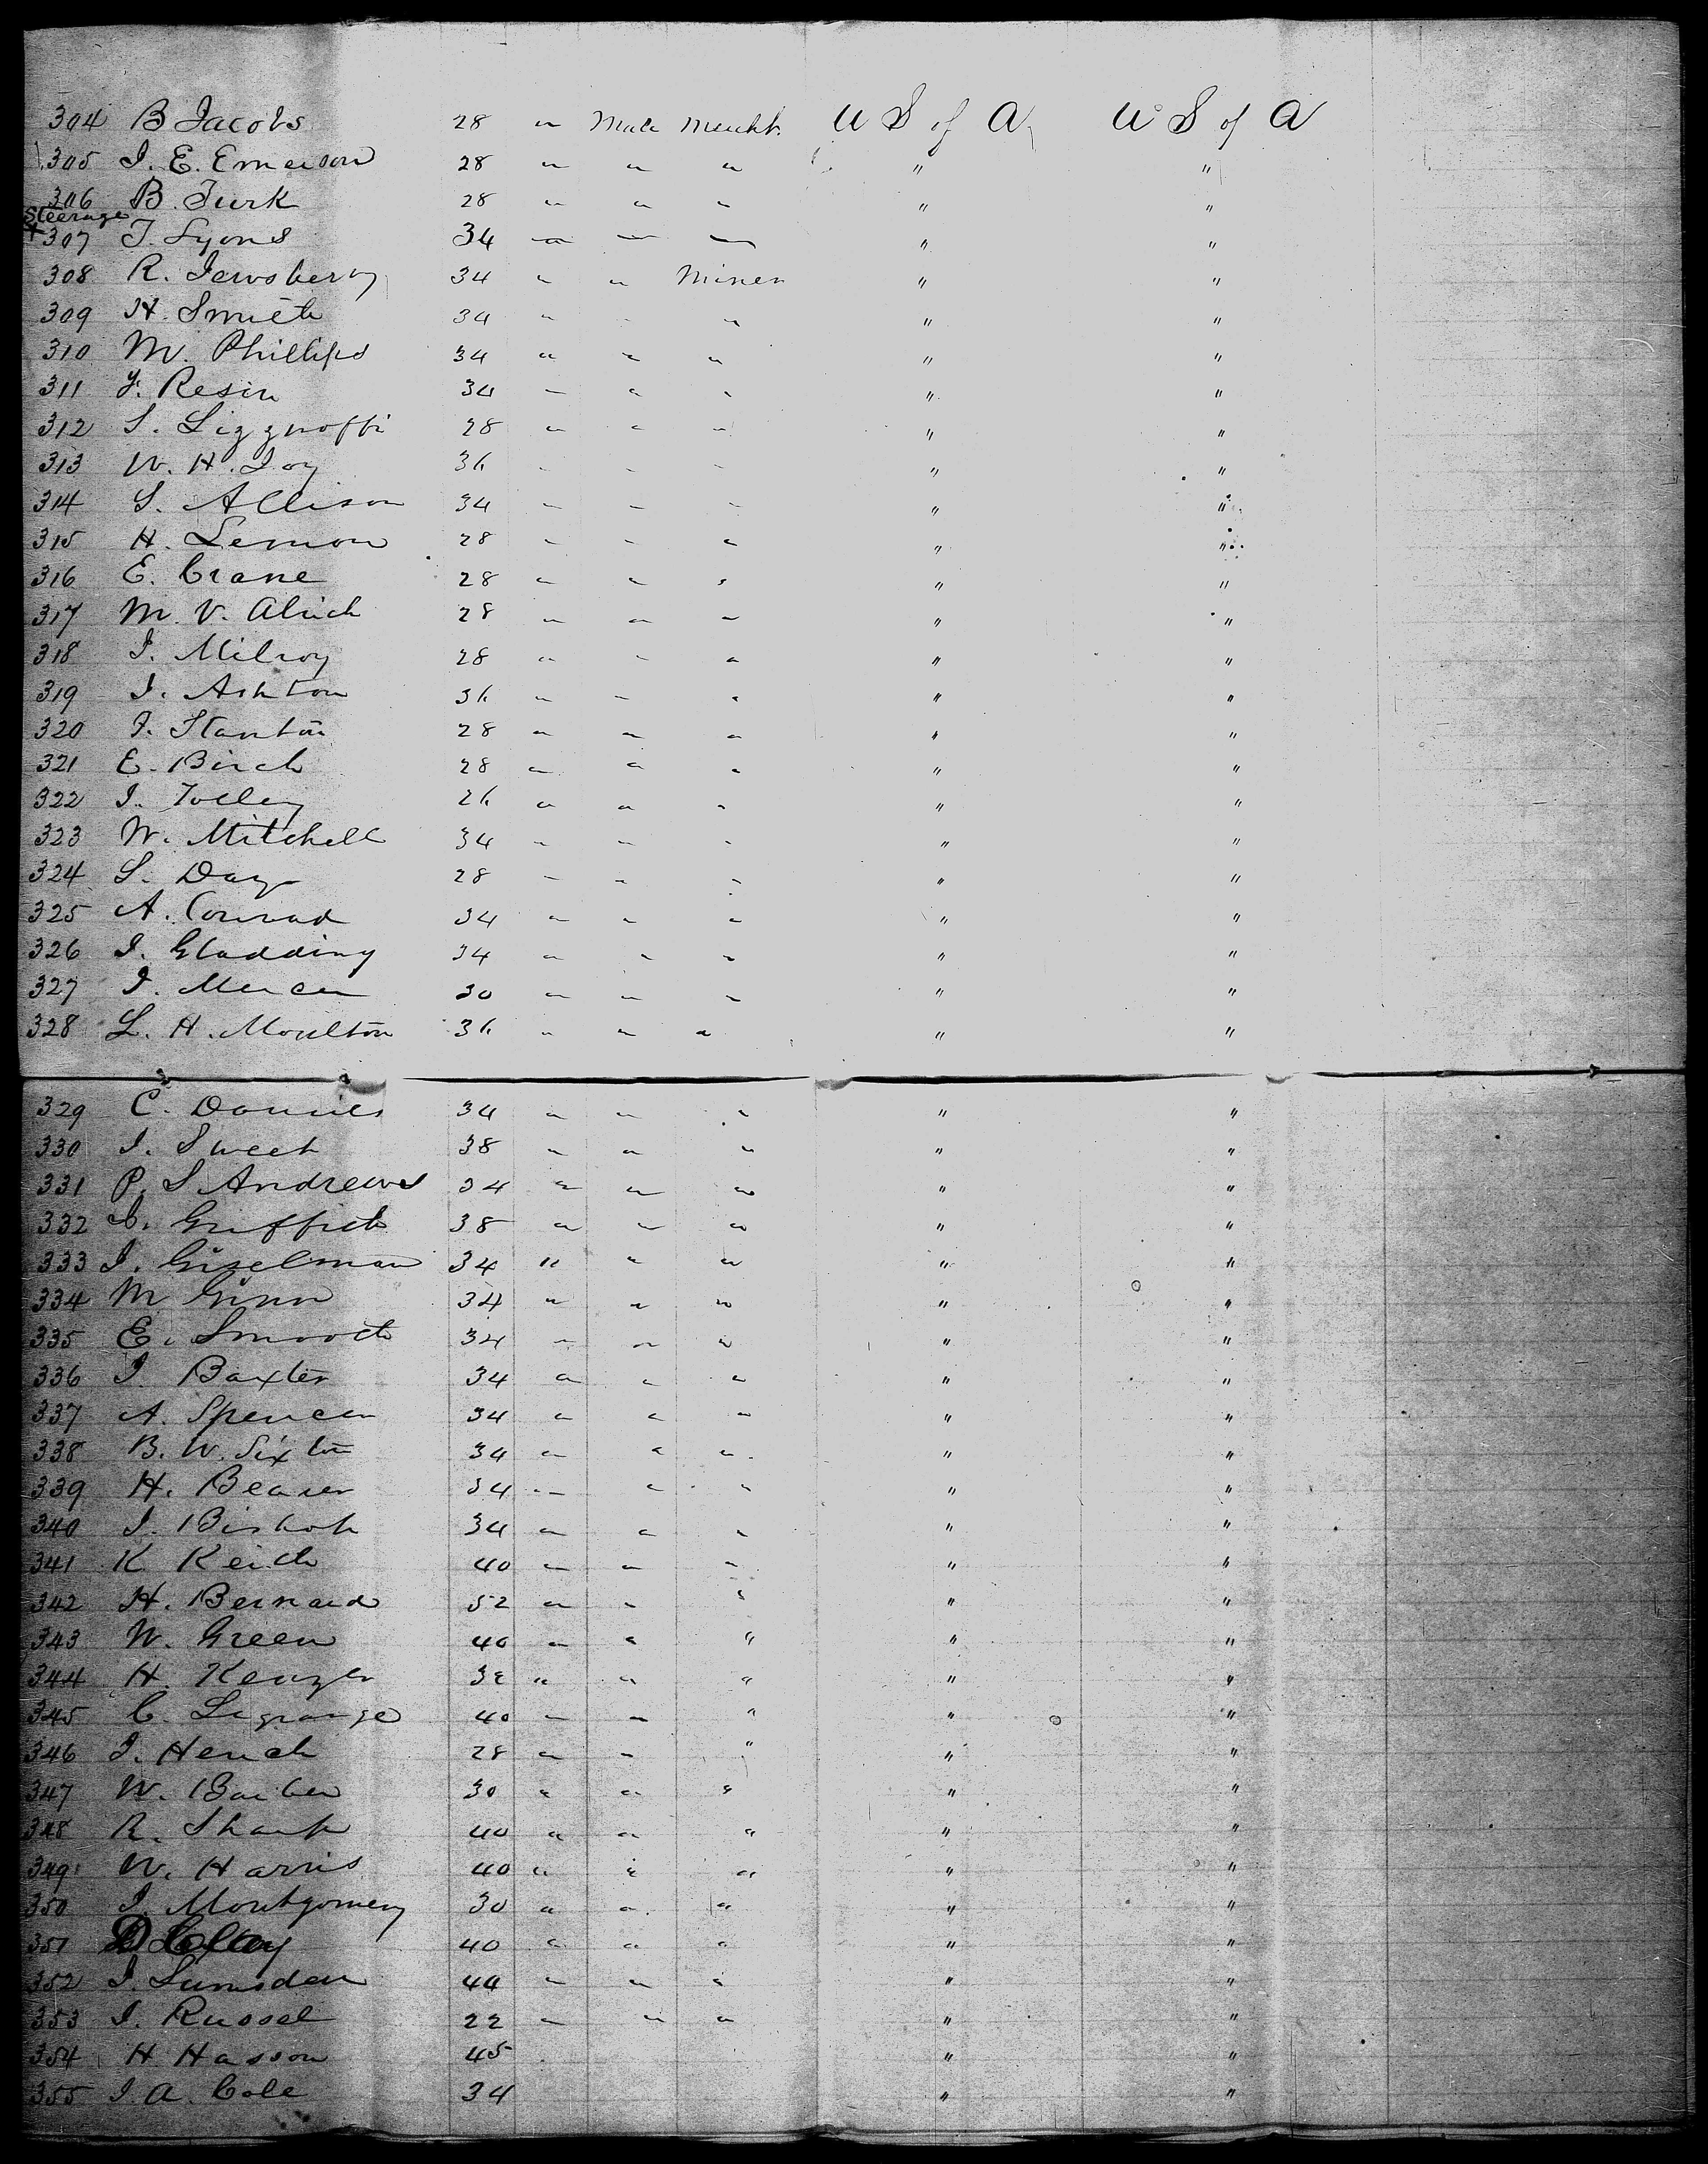 304 B Jacobs 28 " Male Mercht. U S of A, U S of A
305 J. E. Emerson 28 " " " " "
306 B. Turk 28 " " " " "
Steerage
+307 T. Lyons 34 " " " " "
308 R. Jewsbery 34 " " Miner " "
309 H. Smith 34 " " " " "
310 M. Phillips 34 " " " " "
311 F. Resin 34 " " " " "
312 S. 28 " " " " "
313 W. H. Joy 36 " " " " "
314 S. Allison 34 " " " " "
315 H. Lemon 28 " " " " "
316 E. Crane 28 " " " " "
317 M. V. Alrich 28 " " " " "
318 J. Milroy 28 " " " " "
319 J. Ashton 36 " " " " "
320 J. Stanton 28 " " " " "
321 E. Birch 28 " " " " "
322 J. Tolley 26 " " " " "
323 W. Mitchell 34 " " " " "
324 S. Day 28 " " " " "
325 A. Conrad 34 " " " " "
326 J. Gladding 34 " " " " "
327 J. Mercer 30 " " " " "
328 L. H. Moulton 36 " " " " "
329 C. Downes 34 " " " " "
330 J. Sweet 38 " " " " "
331 P. S Andrews 34 " " " " "
332 D. Griffith 38 " " " " "
333 J. Giselman 34 " " " " "
334 M Ginn 34 " " " " "
335 E. Smooth 34 " " " " "
336 J Baxter 34 " " " " "
337 A. Spencer 34 " " " " "
338 B. W. Sixton 34 " " " " "
339 H. Beaver 34 " " " " "
340 J. Bishop 34 " " " " "
341 K Keith 40 " " " " "
342 H. Bernard 52 " " " " "
343 W. Green 40 " " " " "
344 H. Kenzer " " " " "
345 C. Legrange 40 " " " " "
346 J. Hench 28 " " " " "
347 W. Barber 30 " " " " "
348 R. Sharp 40 " " " " "
349 W. Harris 40 " " " " "
350 J. Montgomery 30 " " " " "
351 D Clay 40 " " " " "
352 J. Lumsden 44 " " " " "
353 J. Russel 22 " " " " "
354 H Hasson 45 " "
355 J. A. Cole 34 " "